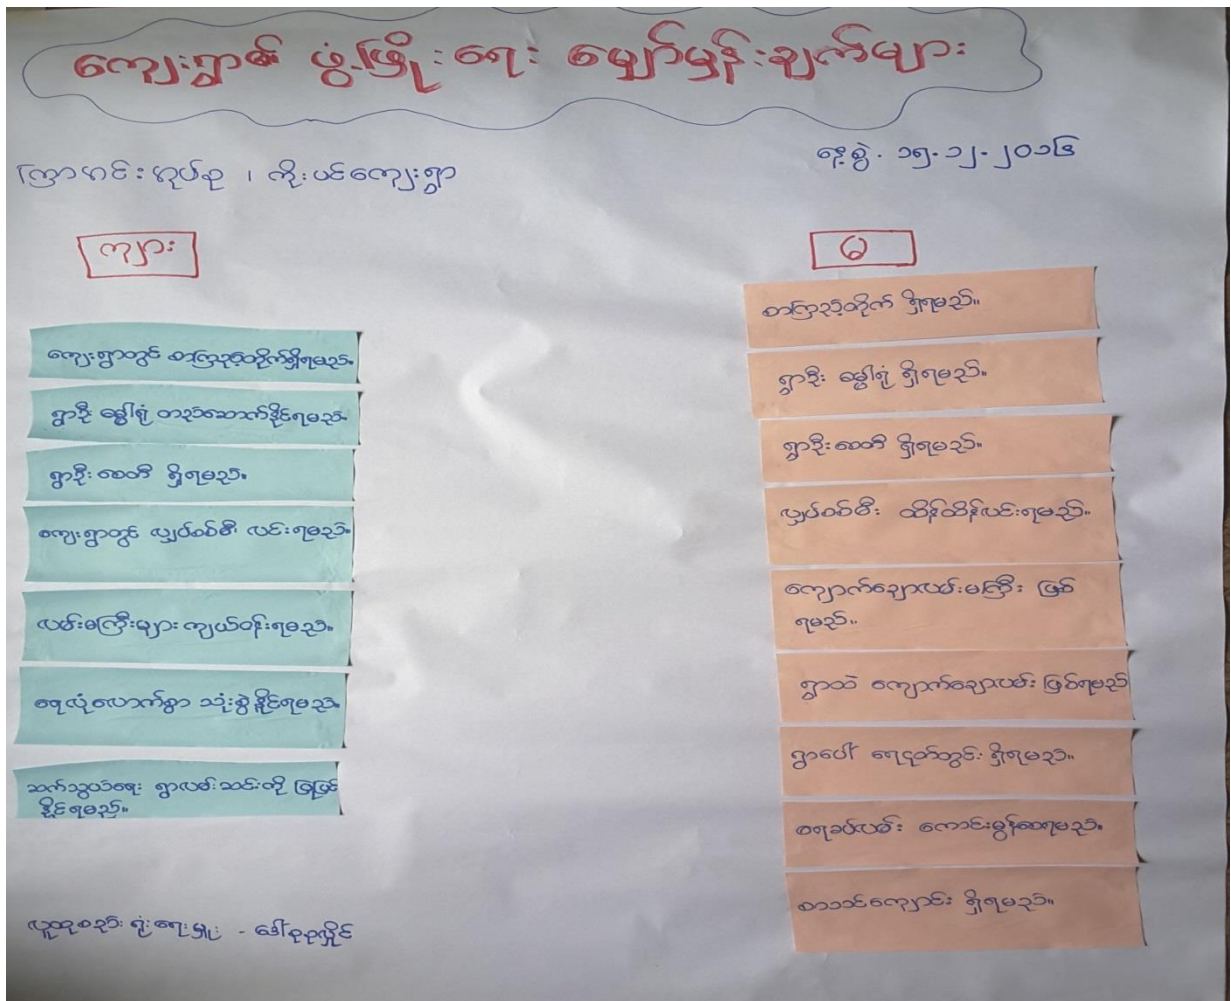 ကျေးရွာ၏ ဖွံ့ဖြိုးရေး မျှော်မှန်းချက်များ
ကြာဟင်းအုပ်စု ၊ ကိုးပင်ကျေးရွာ
နေ့စွဲ - ၁၅-၁၂-၂၀၁၆
ကျား
ကျေးရွာတွင် စာကြည့်တိုက်ရှိရမည်။
ရွာဦး ဓမ္မာရုံ တည်ဆောက်နိုင်ရမည်။
ရွာဦးစေတီ ရှိရမည်။
ကျေးရွာတွင် လျှပ်စစ်မီး လင်းရမည်။
လမ်းမကြီးများ ကျယ်ဝန်းရမည်။
ရေလုံလောက်စွာ သုံးစွဲနိုင်ရမည်။
ဆက်သွယ်ရေး ရွာလမ်းဆင်းတို့ ဖြေဖြင်
နိုင်ရမည်။
လူထုစည်းရုံးရေးမှူး - ဒေါ်စုစုလှိုင်
မ
စာကြည့်တိုက် ရှိရမည်။
ရွာဦး ဓမ္မာရုံ ရှိရမည်။
ရွာဦးစေတီ ရှိရမည်။
လျှပ်စစ်မီး ထိန်ထိန်လင်းရမည်။
ကျောက်ချောလမ်းမကြီး ဖြစ်
ရမည်။
ရွာထဲ ကျောက်ချောလမ်း ဖြစ်ရမည်
ရွာပေါ် ရေငုတ်တွင်း ရှိရမည်။
စရခပ်လမ်း ကောင်းမွန်စေရမည်။
စာသင်ကျောင်း ရှိရမည်။